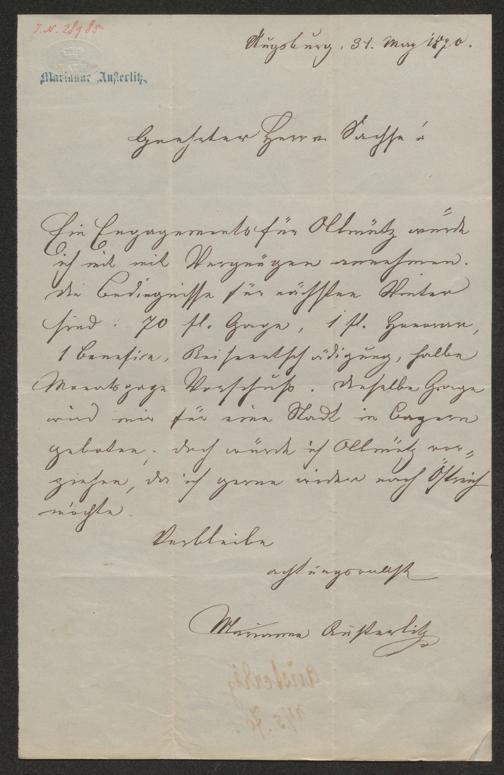 J.N. 28985
Marianne Austerlitz
Augsburg, 31. May 1870.
Geehrter Herr Sachse!
Ein Engagements für Ollmütz würde
ich mit Vergnügen annehmen.
Die Bedingnisse für nächsten Winter
sind: 70 fl. Gage, 1 fl. Honorar,
1 Benefice, Reiseentschädigung, halbe
Monatsgage Vorschuß. Dieselbe Gage
wird mir für eine Stadt in Bayern
geboten, doch würde ich Ollmütz vor=
ziehen, da ich gerne wieder nach Östreich
möchte.
Verbleibe
achtungsvollst
Marianne Austerlitz
Austerlitz